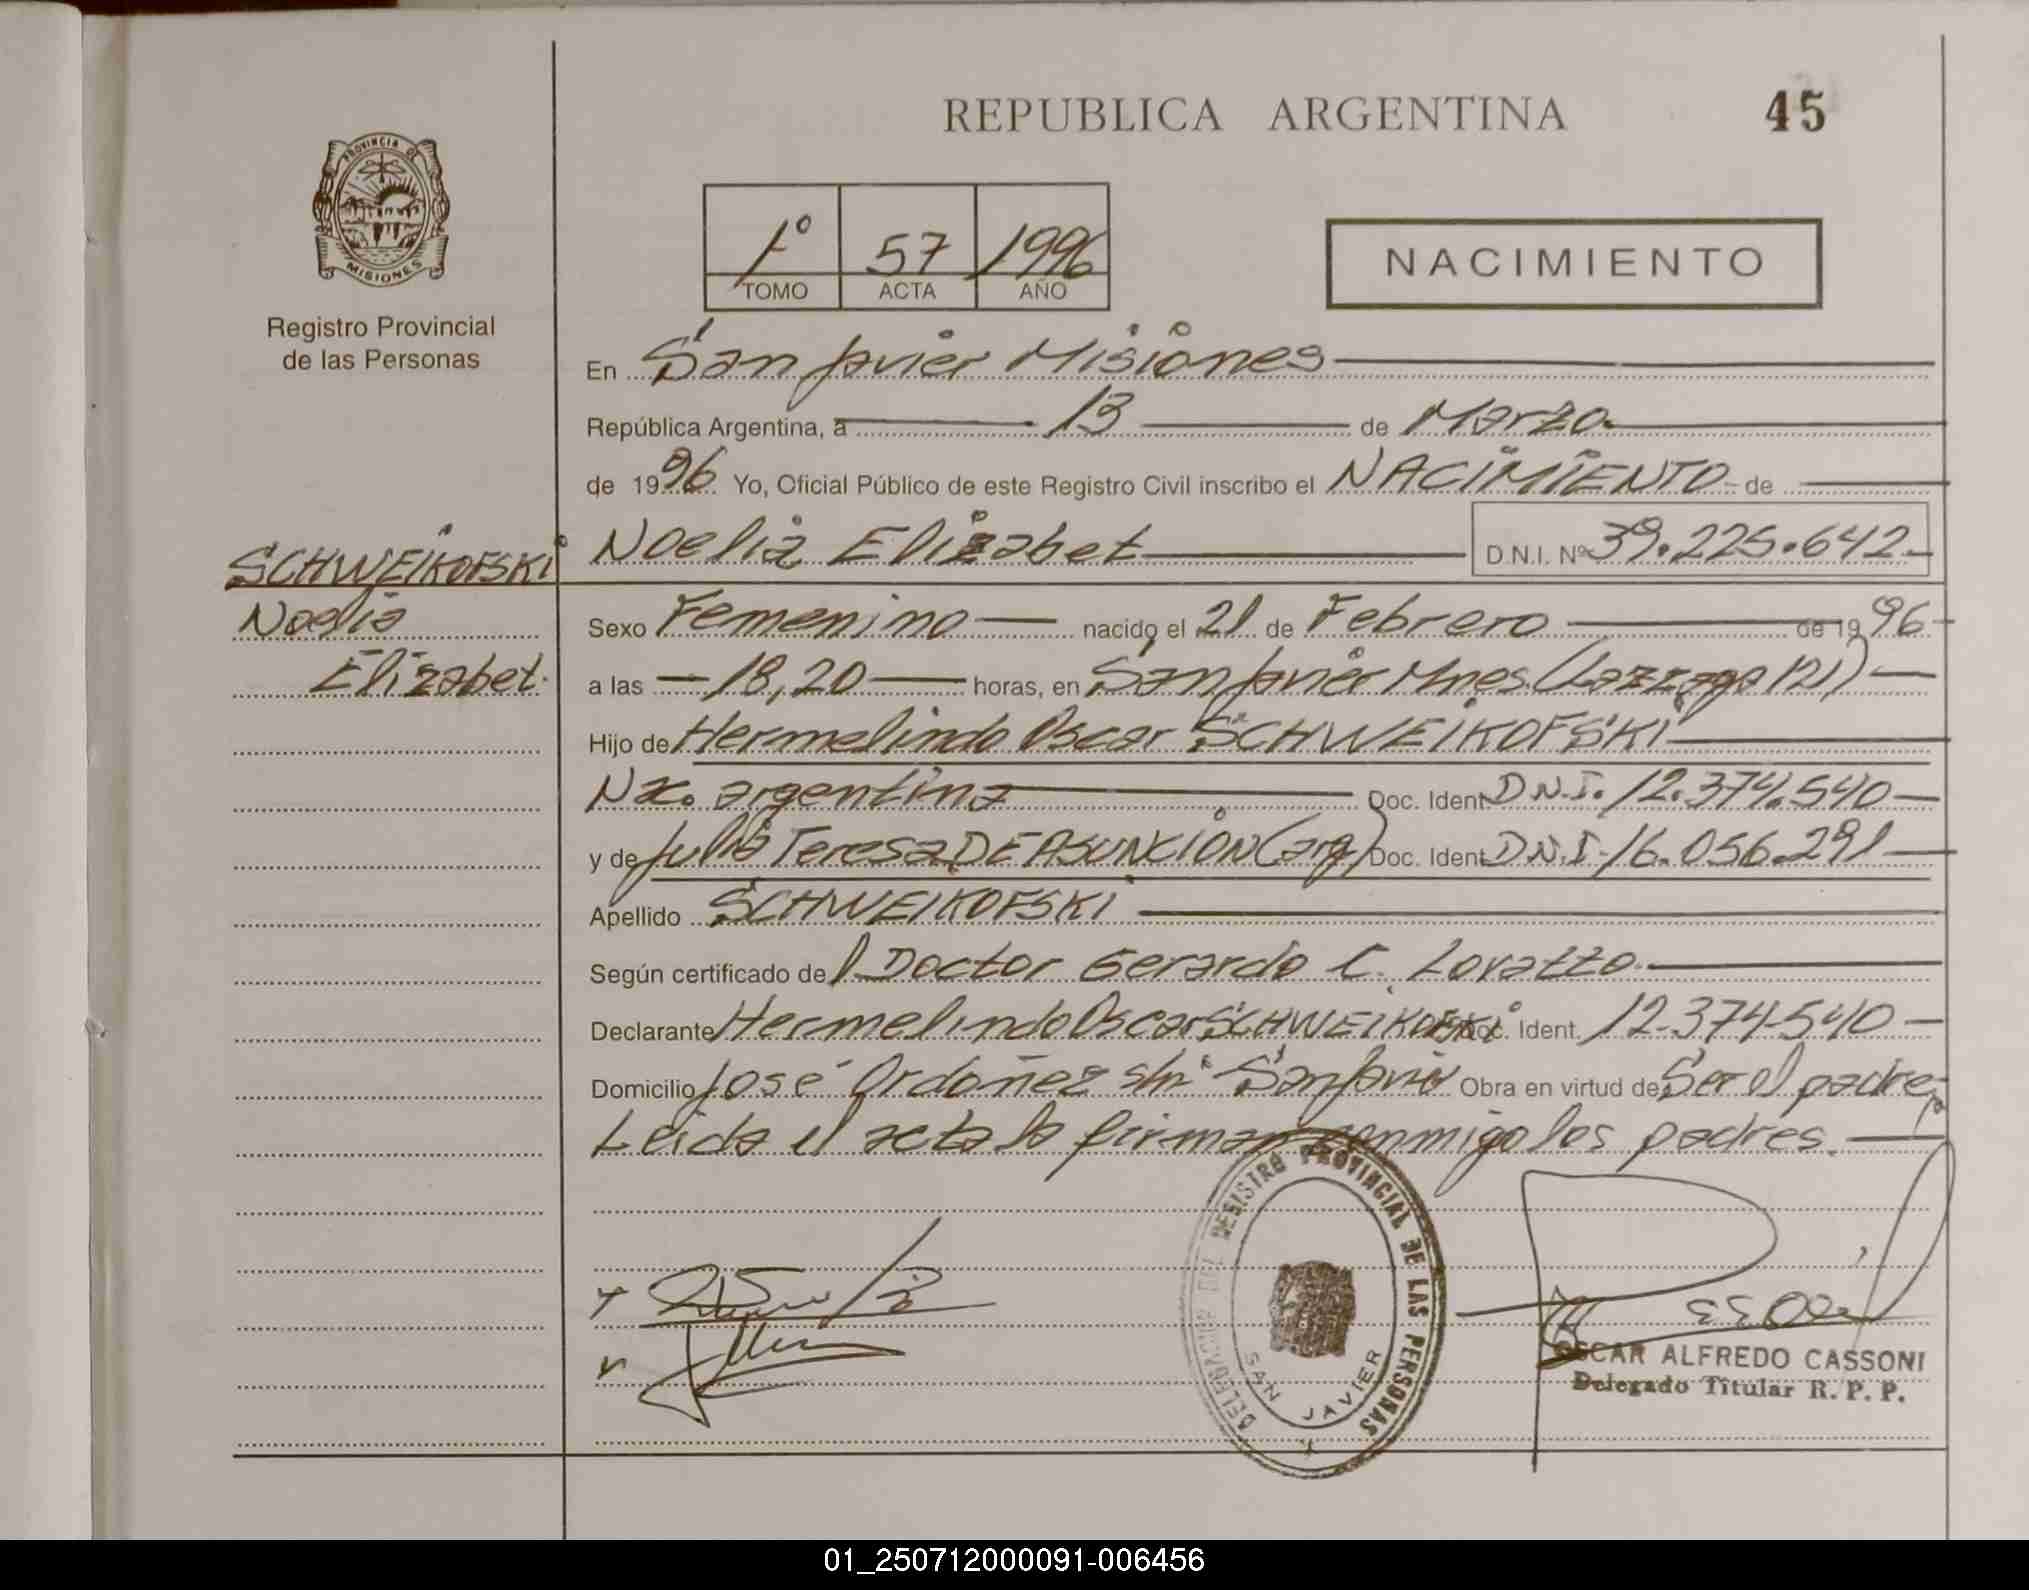 REPUBLICA ARGENTINA
45
PROVINCIA DE
MISIONES
Registro Provincial
de las Personas
1º 57 1996
TOMO ACTA AÑO
NACIMIENTO
En San Javier Misiones
República Argentina, a 13 de Marzo
de 1996 Yo, Oficial Público de este Registro Civil inscribo el NACIMIENTO de
SCHWEIKOFSKI
Noelia
Elizabet.
Noelia Elizabet D.N.I. Nº 39.225.642
Sexo Femenino nacido el 21 de Febrero de 1996
a las 18,20 horas, en San Javier Mnes (Lazzaga 121)
Hijo de Hermelindo Oscar SCHWEIKOFSKI
Nac. argentina Doc. Ident D.N.I. 12.374.540
y de Julia Teresa DE ASUNCION (arg) Doc. Ident D.N.I. 16.056.291
Apellido SCHWEIKOFSKI
Según certificado del Doctor Gerardo C. Lovatto
Declarante Hermelindo Oscar SCHWEIKOFSKI Doc. Ident. 12.374.540
Domicilio José Ordoñez s/nº San Javier Obra en virtud de Ser el padre,
Leida el acta la firman conmigo los padres.
DELEGACION DEL REGISTRO PROVINCIAL DE LAS PERSONAS
SAN JAVIER
OSCAR ALFREDO CASSONI
Delegado Titular R. P. P.
01_250712000091-006456